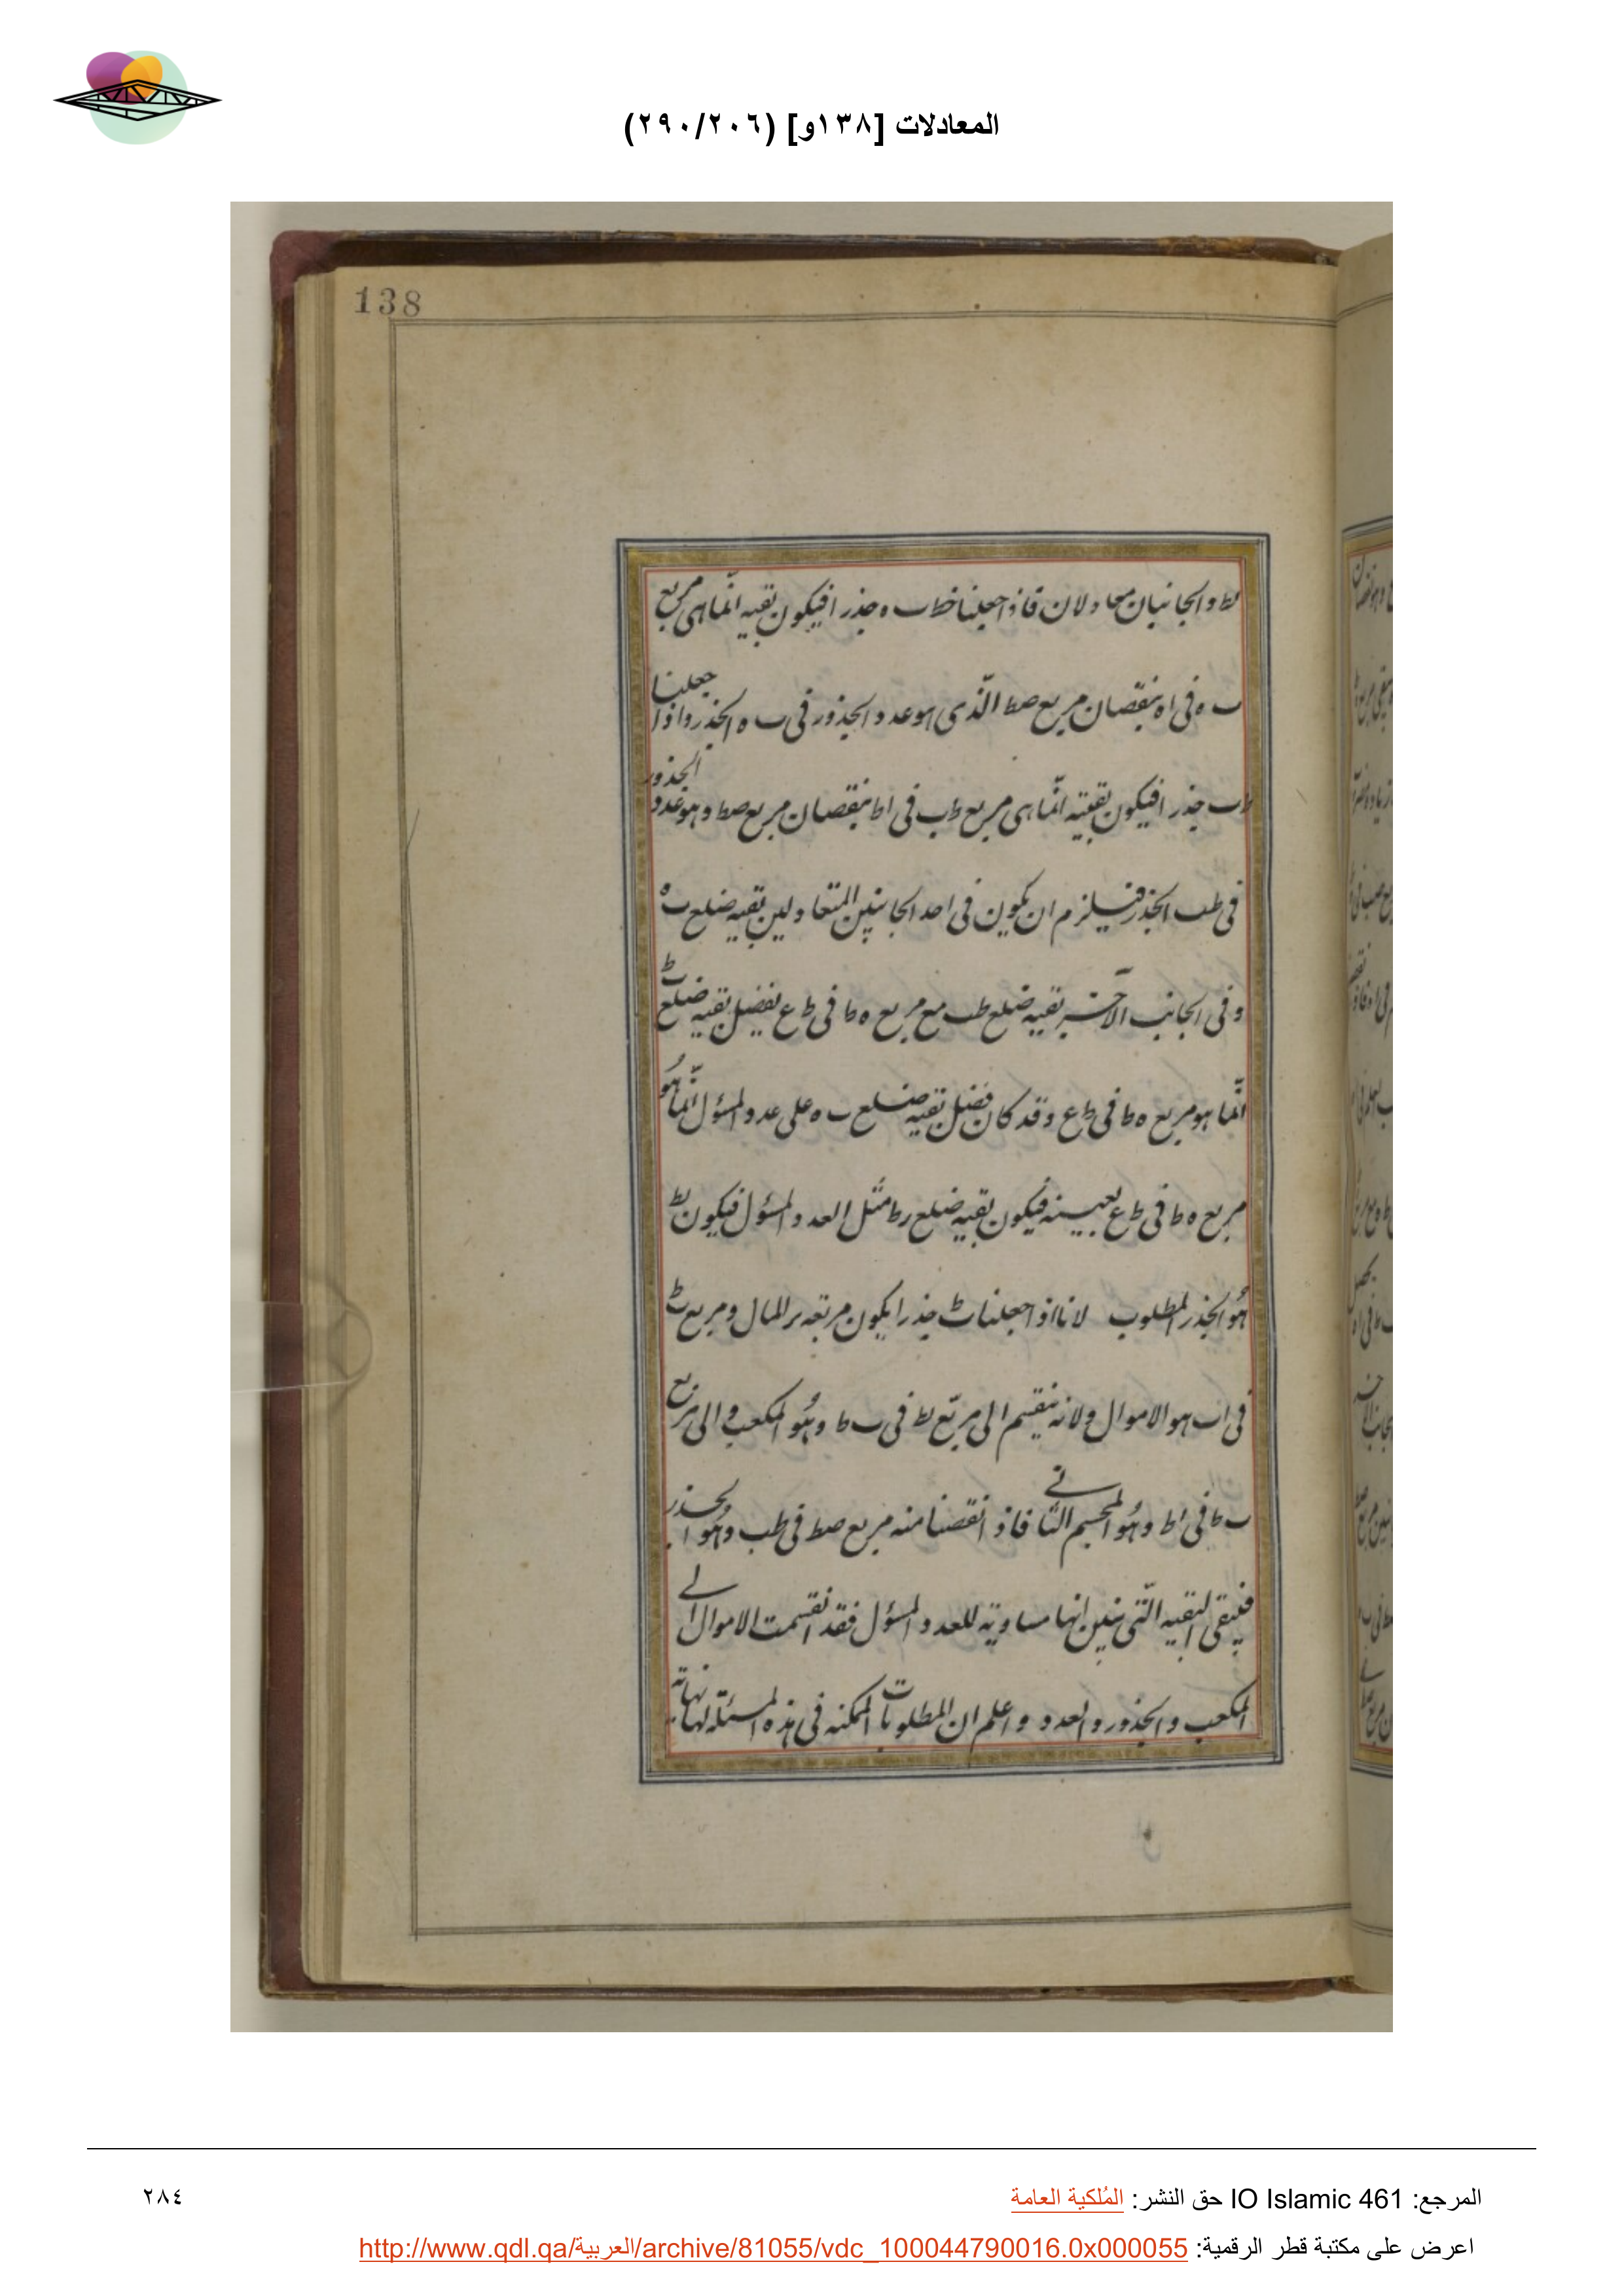 المعادلات [١٣٨و] (٢٩٠/٢٠٦)
138
لط والجانبان متعادلان فاذا جعلنا خط ب ه جذرا فيكون بقيه انما هى مربع
ب ه فى اه بنقصان مربع صط الذى هو عدد الجذور فى ب ه الجذر واذا جعلنا
طب جذرا فيكون بقيته انما هى مربع طب فى اط بنقصان مربع صط وهو عدد الجذور
فى طب الجذر فيلزم ان يكون فى احد الجانبين المتعادلين بقيه ضلع ب ه
وفى الجانب الآخر بقيه ضلع طب مع مربع ه ط فى ط ع ففضل بقيه ضلع
انما هو مربع ه ط فى ط ع وقد كان فضل بقيه ضلع ب ه على عدد المسؤل انما هو
مربع ه ط فى ط ع بعينه فيكون بقيه ضلع مثل العدد المسؤل فيكون
هو الجذر المطلوب لانا اذا جعلنا جذرا يكون مربعه المال ومربع
فى اب هو الاموال ولانه ينقسم الى مربع فى ب ط وهو المكعب والى مربع
ب ط فى اط وهو المجسم الثانى فاذا نقصنا منه مربع صط فى طب وهو الجذر
فيبقى البقيه التى تبين انها مساويه للعدد المسؤل فقد انقسمت الاموال الى
المكعب والجذور والعدد واعلم ان المطلوبات الممكنه فى هذه المسئله لها نهايه
المرجع: IO Islamic 461 حق النشر: المُلكية العامة
٢٨٤
اعرض على مكتبة قطر الرقمية: http://www.qdl.qa/العربية/archive/81055/vdc_100044790016.0x000055